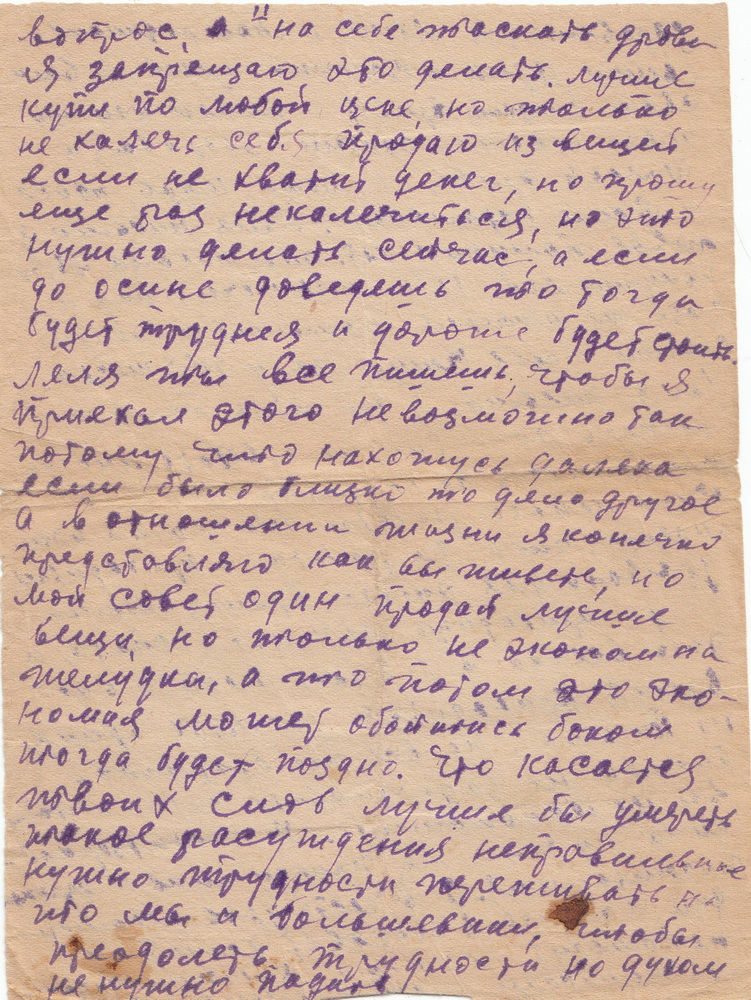 вопрос, "на себе таскать дрова
я запрещаю это делать. лучше
купи по любой цене, но только
не калечь себя продаю из вещей
если не хватит денег, но прошу
еще раз некалечиться, но это
нужно делать сейчас, а если
до осине доведешь то тогда
будет трудняя и дороже будет стоить.
Леля ты все пишешь, чтобы я
приехал этого невозможно так
потому что нахожусь далека
если было близко то дело другое
а в отношении жизни я конечно
представляю как вы живете, но
мой совет один продай лучшие
вещи, но только не эконом на
желудка, а то потом это эко-
номия может обойтись боком
тогда будет поздно. Что касается
твоих слов лучше бы умереть
такое расуждения неправильные
нужно трудности переживать на
то мы и большевики, чтобы
преодолеть трудности но духом
не нужно падать